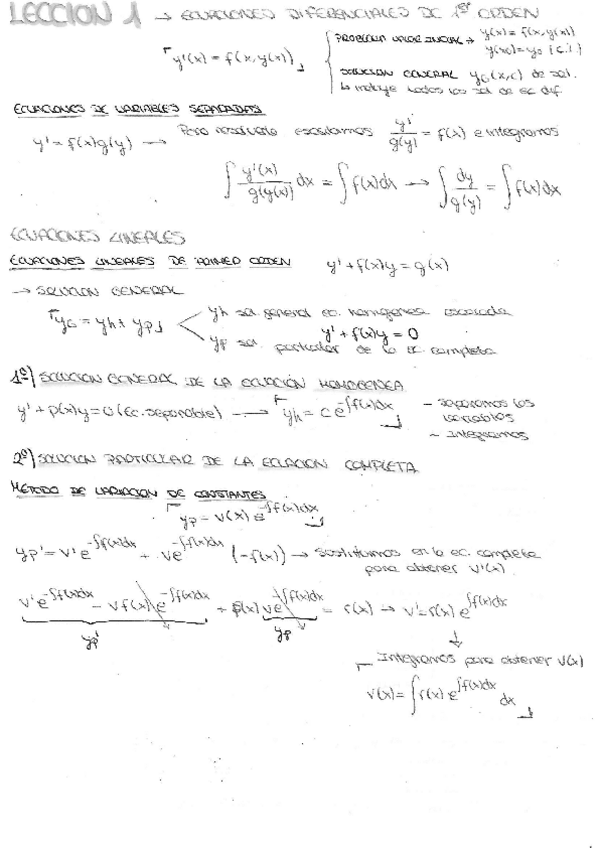 LECCION 1 → ECUACIONES DIFERENCIALES DE 1er ORDEN
y'(x) = f(x, y(x))
PROBLEMA VALOR INICIAL → y'(x) = f(x, y(x))
y(x0) = y0 (c.i.)
SOLUCION GENERAL yG(x,c) de sol.
la incluye todas las sol de ec dif.
ECUACIONES DE VARIABLES SEPARADAS
y' = f(x)g(y) → Para resolverla escribimos y'/g(y) = f(x) e integramos
∫ y'(x)/g(y(x)) dx = ∫ f(x)dx → ∫ dy/g(y) = ∫ f(x)dx
ECUACIONES LINEALES
ECUACIONES LINEALES DE PRIMER ORDEN y' + f(x)y = g(x)
→ SOLUCION GENERAL
yG = yh + yp
yh sol. general ec. homogenea asociada
y' + f(x)y = 0
yp sol. particular de la ec. completa
1º) SOLUCION GENERAL DE LA ECUACIÓN HOMOGENEA
y' + p(x)y = 0 (Ec. separable) → yh = C e^{-∫f(x)dx}
- separamos las variables
- integramos
2º) SOLUCION PARTICULAR DE LA ECUACION COMPLETA
MÉTODO DE VARIACION DE CONSTANTES
yp = v(x) e^{-∫f(x)dx}
yp' = v'e^{-∫f(x)dx} + ve^{-∫f(x)dx} (-f(x)) → sustituimos en la ec. completa
para obtener v'(x)
v'e^{-∫f(x)dx} - vf(x)e^{-∫f(x)dx} + p(x)ve^{-∫f(x)dx} = r(x) → v' = r(x) e^{∫f(x)dx}
yp' yp ↓
Integramos para obtener v(x)
v(x) = ∫ r(x) e^{∫f(x)dx} dx